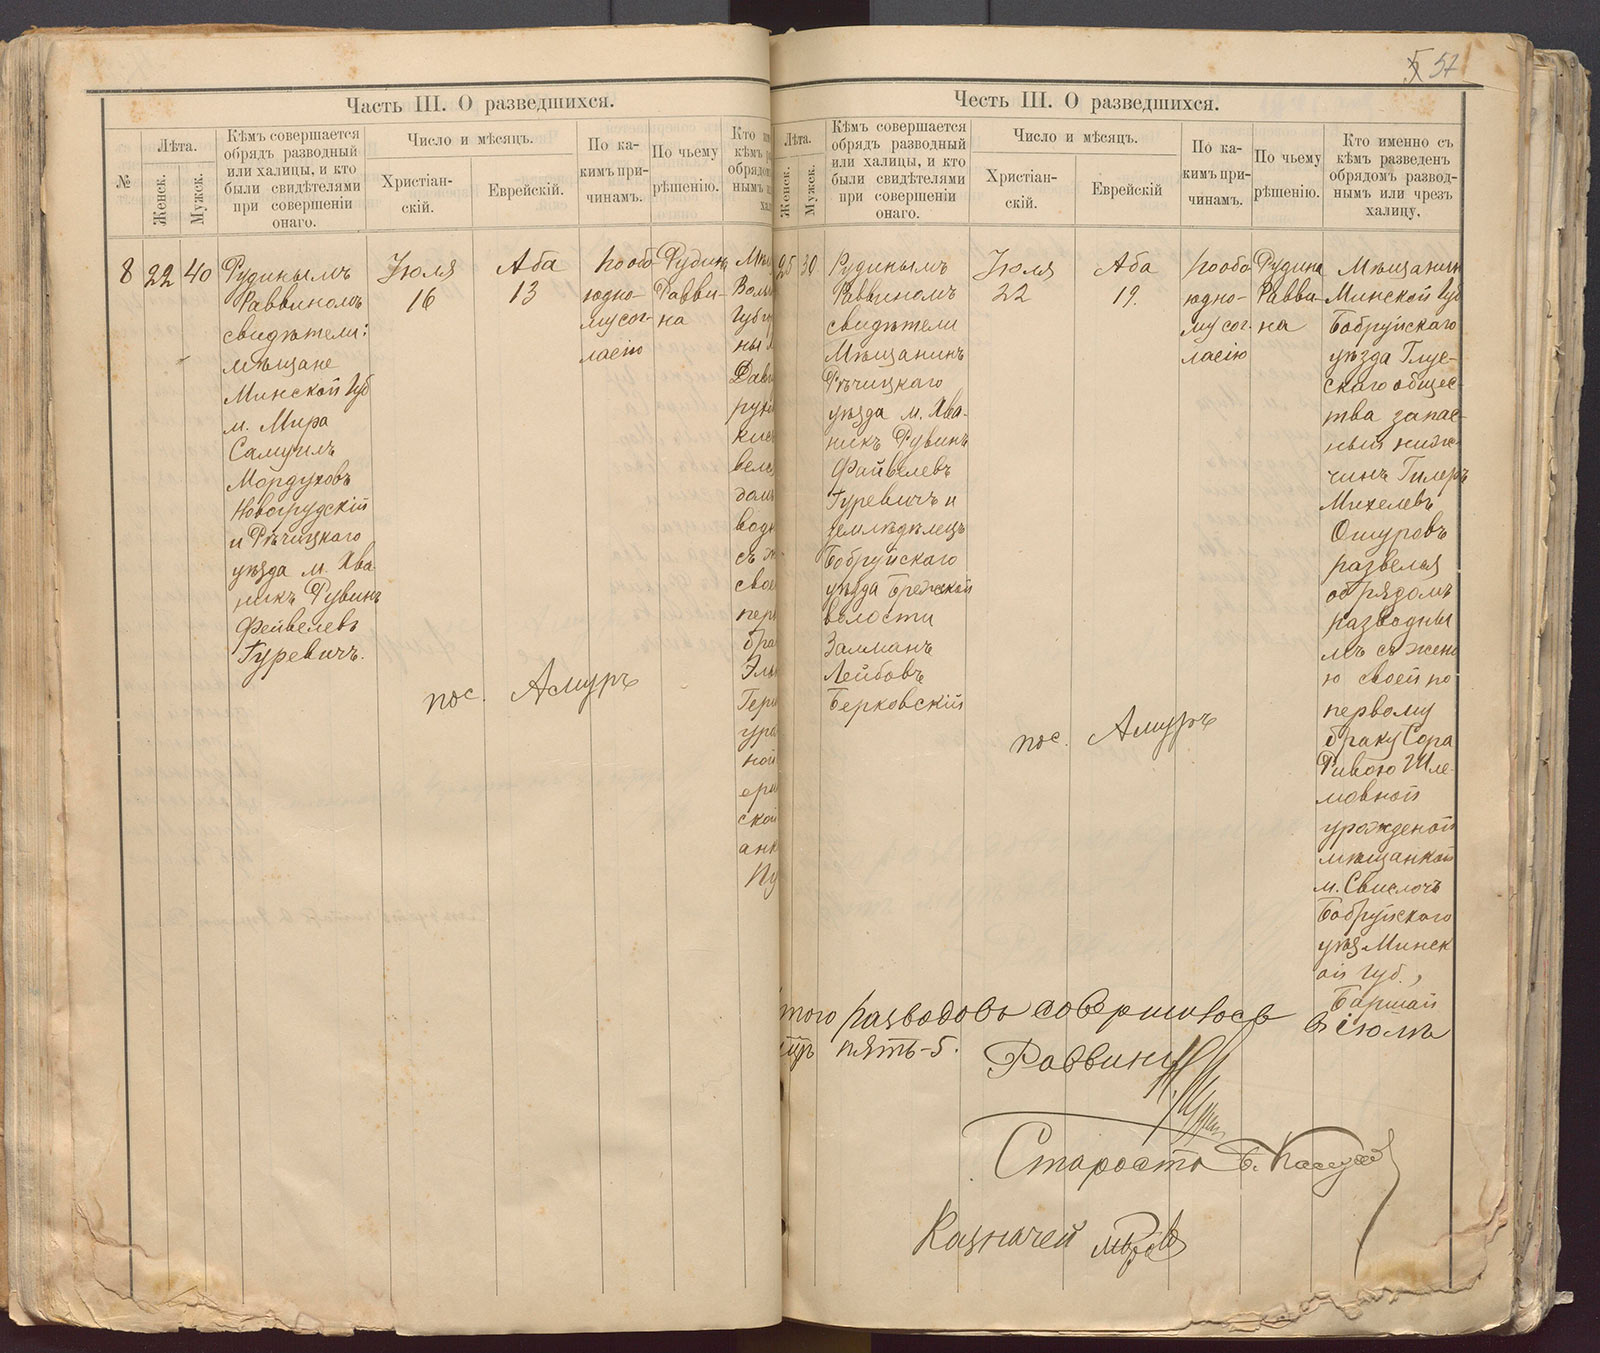 57
Часть III. О разведшихся.
№
Лѣта.
Женск.
Мужск.
Кѣмъ совершается
обрядъ разводный
или халицы, и кто
были свидѣтелями
при совершеніи
онаго.
Число и мѣсяцъ.
Христіан-
скій.
Еврейскій.
По ка-
кимъ при-
чинамъ.
По чьему
рѣшенію.
Кто им
кѣмъ р
обрядом
нымъ и
хал
8
22
40
Рудинымъ
Раввиномъ
свидѣтели:
мѣщане
Минской Губ
м. Мира
Самуилъ
Мордуховъ
Новогрудскій
и Рѣчицкаго
уѣзда м. Хва
никъ Рувинъ
Фейвелевъ
Гуревичъ.
Іюля
16
Аба
13
по обо
юдно-
му сог-
ласію
Рудин
Равви-
на
Мѣщ
Волы
Губ
ны
Дав
рухъ
кис
вел
вод
съ ж
свое
пер
бра
Эль
Гер
уро
ной
ской
анк
Пу
пос. Амуръ
Честь III. О разведшихся.
Лѣта.
Женск.
Мужск.
Кѣмъ совершается
обрядъ разводный
или халицы, и кто
были свидѣтелями
при совершеніи
онаго.
Число и мѣсяцъ.
Христіан-
скій.
Еврейскій
По ка-
кимъ при-
чинамъ.
По чьему
рѣшенію.
Кто именно съ
кѣмъ разведенъ
обрядомъ развод-
нымъ или чрезъ
халицу.
25
30
Рудинымъ
Раввиномъ
свидѣтели
Мѣщанинъ
Рѣчицкаго
уѣзда м. Хва-
никъ Рувинъ
Файвелевъ
Гуревичъ и
землѣдѣлецъ
Бобруйскаго
уѣзда
волости
Залманъ
Лейбовъ
Берковскій
Іюля
22
Аба
19.
по обо
юдно-
му сог-
ласію
Рудина
Равви-
на
Мѣщанин
Минской Губ
Бобруйскаго
уѣзда Глус-
скаго общес-
тва запас-
ный ниж-
чинъ Гилеръ
Михелевъ
Ошуровъ
развелья
обрядомъ
разводны
мъ съ жено
ю своей по
первому
браку Сора
Ривою Шле-
мовной
урожденой
мѣщанкой
м. Свислочъ
Бобруйскаго
уѣз Минск
ой Губ.,
Баршай
пос. Амуръ
того разводовъ совершилось въ іюлѣ
пять-5.
Раввинъ
Староста Б.
Казначей